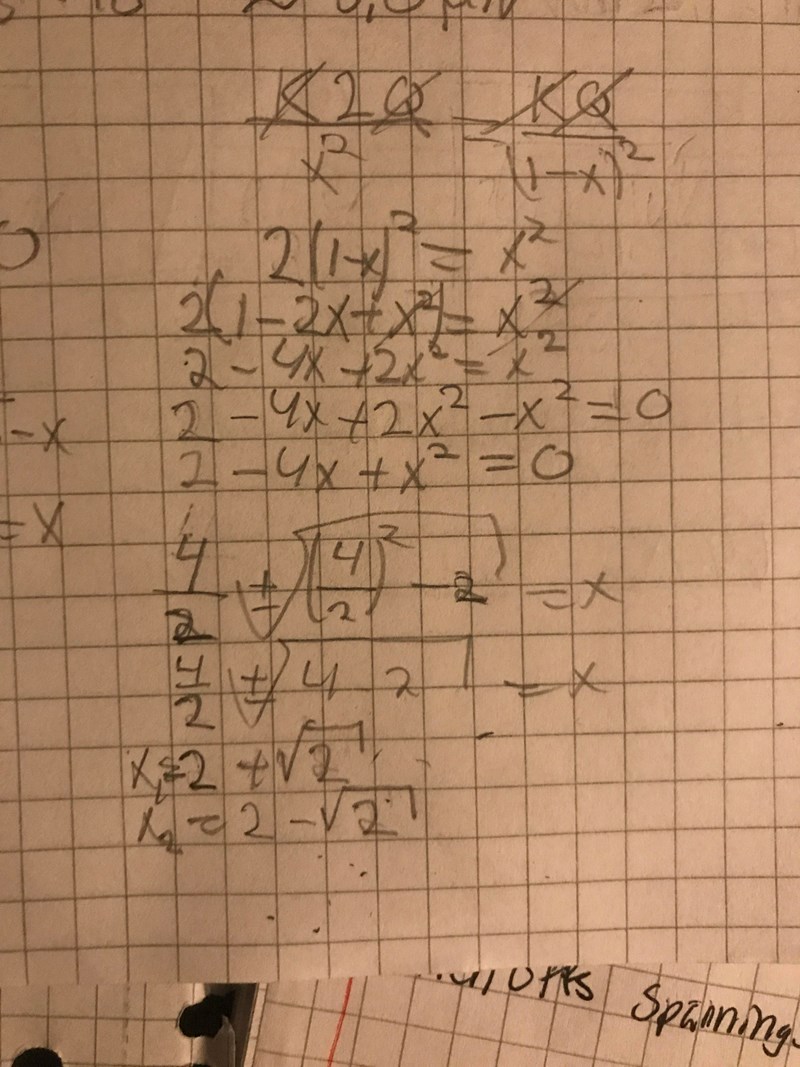 K2Q/x² = KQ/(1-x)²
2(1-x)² = x²
2(1-2x+x²) = x²
2-4x+2x² = x²
2-4x+2x²-x² = 0
-x
2-4x+x² = 0
=x
4/2 ± √((4/2)² - 2) = x
4/2 ± √(4 2) = x
x₁=2 + √2
x₂ = 2 - √2
Spänning